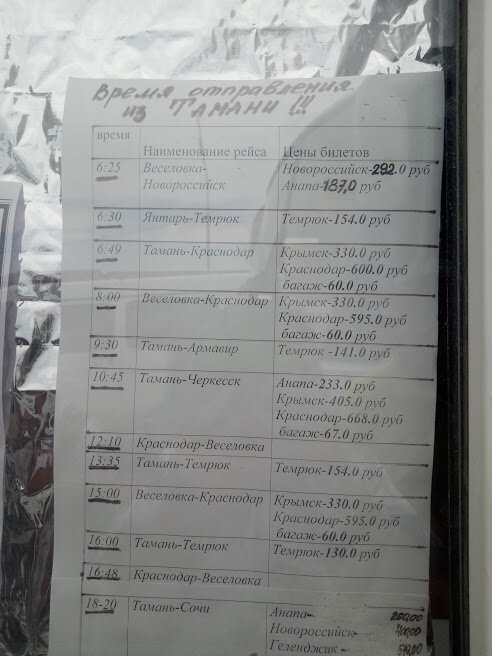 Время отправления
из ТАМАНИ !!!
время Наименование рейса Цены билетов
6:25 Веселовка- Новороссийск-292.0 руб
Новороссийск Анапа-187,0 руб
6:30 Янтарь-Темрюк Темрюк-154.0 руб
6:49 Тамань-Краснодар Крымск-330.0 руб
Краснодар-600.0 руб
багаж-60.0 руб
8:00 Веселовка-Краснодар Крымск-330.0 руб
Краснодар-595.0 руб
багаж-60.0 руб
9:30 Тамань-Армавир Темрюк -141.0 руб
10:45 Тамань-Черкесск Анапа-233.0 руб
Крымск-405.0 руб
Краснодар-668.0 руб
багаж-67.0 руб
12:10 Краснодар-Веселовка
13:35 Тамань-Темрюк Темрюк-154.0 руб
15:00 Веселовка-Краснодар Крымск-330.0 руб
Краснодар-595.0 руб
багаж-60.0 руб
16:00 Тамань-Темрюк Темрюк-130.0 руб
16:48 Краснодар-Веселовка
18-20 Тамань-Сочи Анапа-
Новороссийск- 400,00
Геленджик-